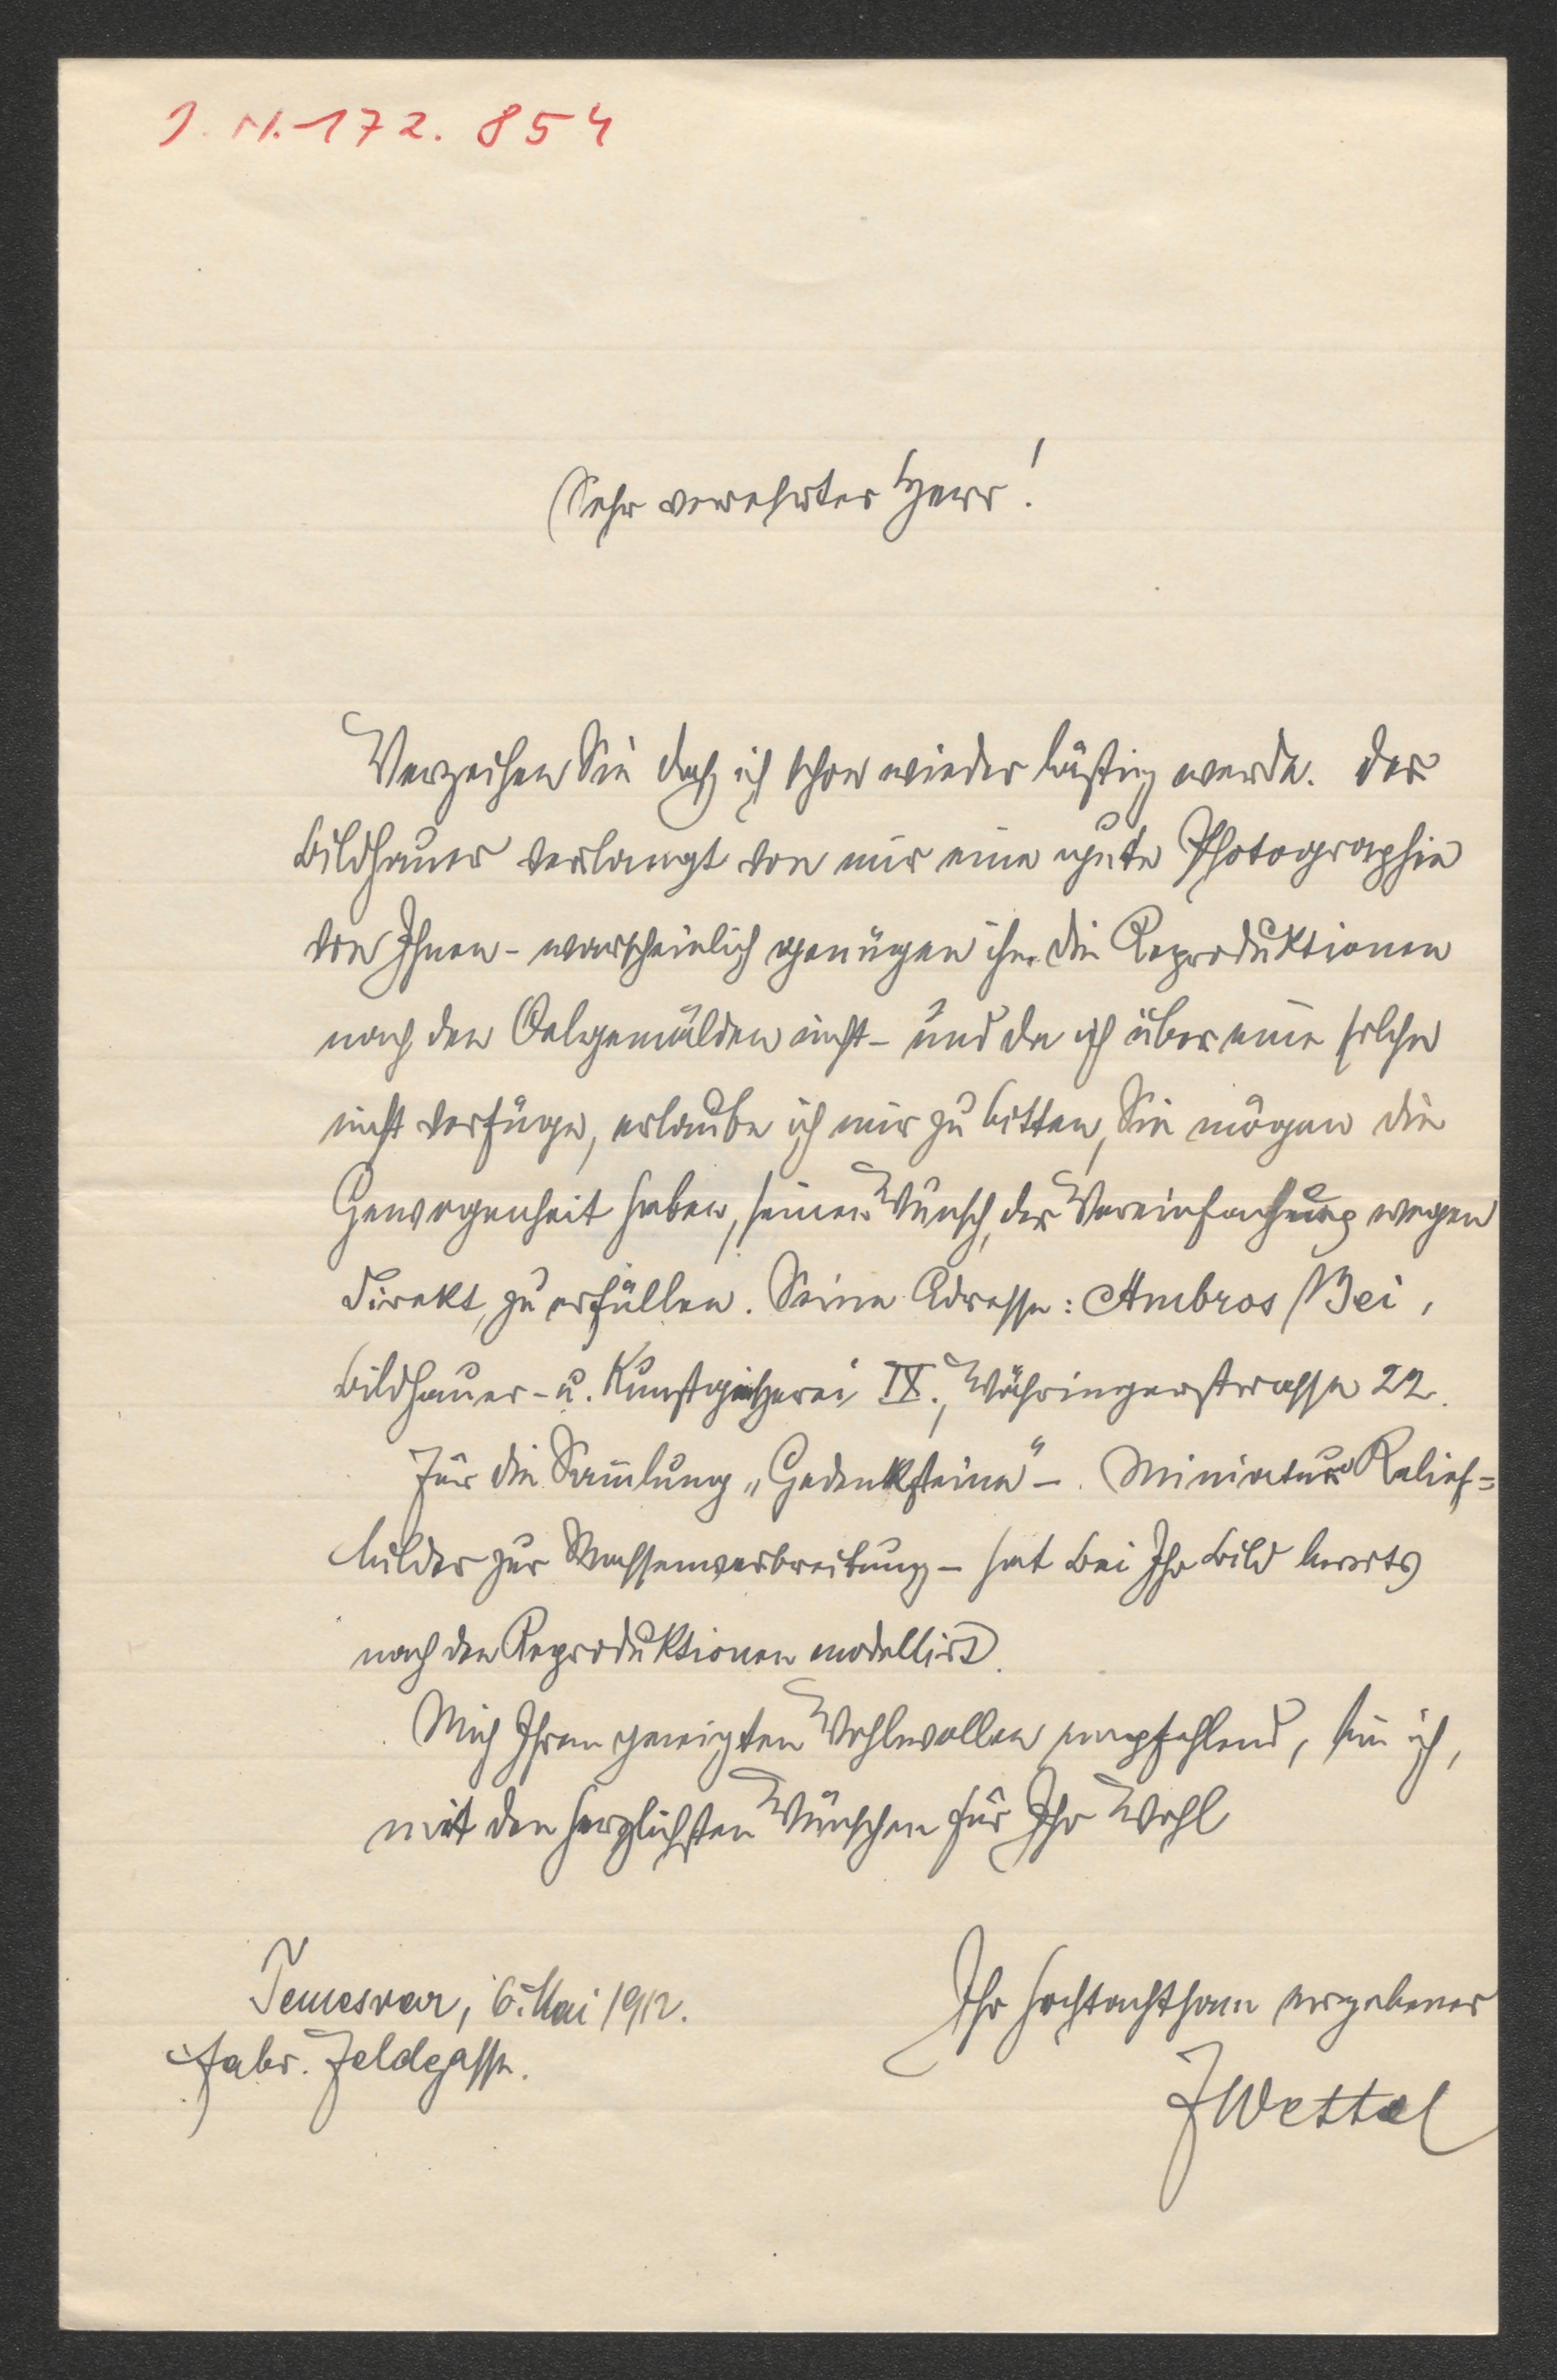 J. N. 172. 854
Sehr verehrter Herr!
Verzeihen Sie daß ich schon wieder lästig werde. Der
Bildhauer verlangt von mir eine gute Photographie
von Ihnen - warscheinlich genügen ihm die Reproduktionen
nach den Oelgemälden nicht - und da ich über eine solche
nicht verfüge, erlaube ich mir zu bitten, Sie mögen die
Gewogenheit haben, seinen Wunsch, der Vereinfachung wegen
direkt, zu erfüllen. Seine Adresse: Ambros Bei,
Bildhauer- u. Kunstgießerei IX., Währingerstrasse 22.
Für die Sam̅lung „Gedenksteine" - Miniatur Relief=
bilder zur Massenverbreitung - hat Bei Ihr Bild bereits
nach den Reproduktionen modellirt.
Mich Ihrem geneigten Wohlwollen empfehlend, bin ich,
mit den herzlichsten Wünschen für Ihr Wohl
Ihr hochachtsam ergebener
Temesvar, 6. Mai 1912.
Fabr. Feldgasse.
FWettel